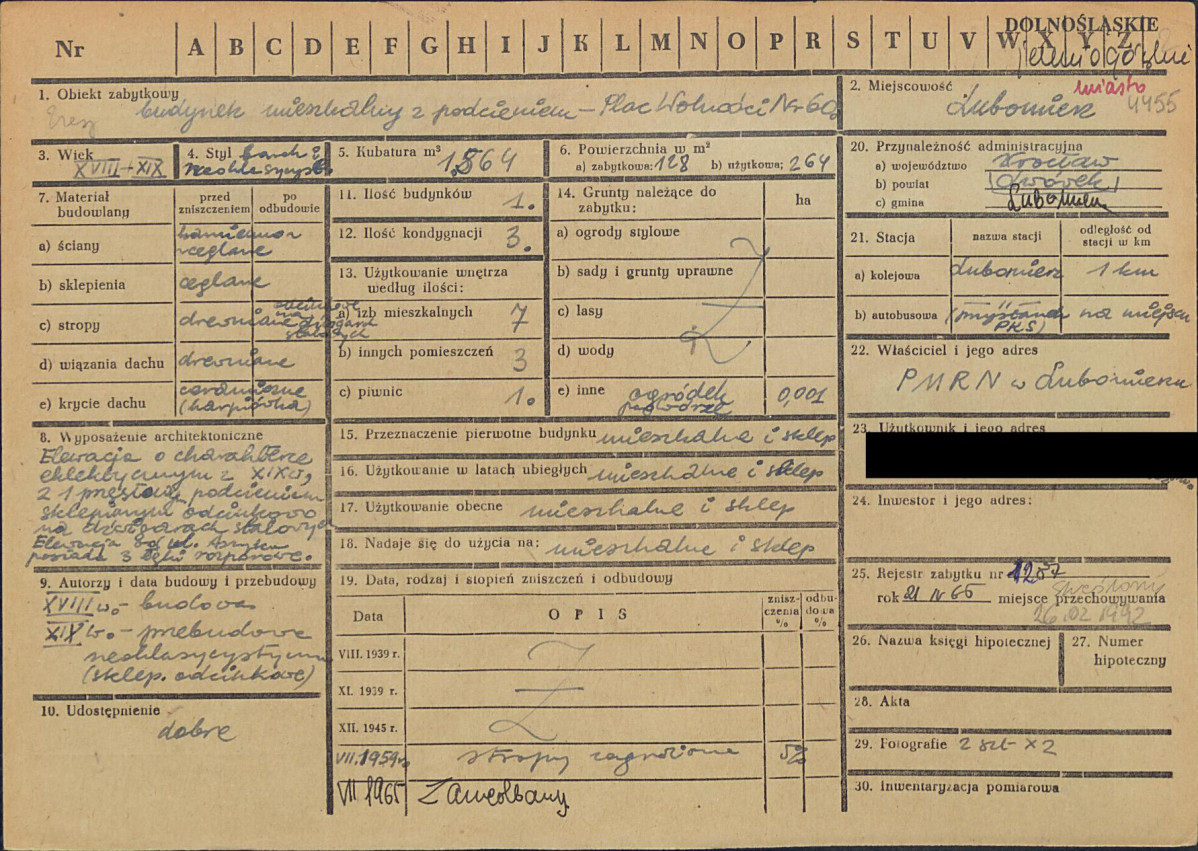 DOLNOŚLĄSKIE
Nr A B C D E F G H I J K L M N O P R S T U V W X Y Z
1. Obiekt zabytkowy
budynek mieszkalny z podcieniem – Plac Wolności Nr 60
2. Miejscowość miasto
Lubomierz 4455
3. Wiek
XVIII + XIX
4. Styl barok i
neoklasycyst.
5. Kubatura m³
1.564
6. Powierzchnia w m²
a) zabytkowa: 128 b) użytkowa; 264
20. Przynależność administracyjna
a) województwo Wrocław
b) powiat (Lwówek)
c) gmina Lubomierz
7. Materiał budowlany
przed zniszczeniem
po odbudowie
a) ściany kamienno ceglane
b) sklepienia ceglane
c) stropy drewniane odcinkowe na dźwigarach stalowych
d) wiązania dachu drewniane
e) krycie dachu ceramiczne (karpiówka)
11. Ilość budynków 1.
12. Ilość kondygnacji 3.
13. Użytkowanie wnętrza
według ilości:
a) izb mieszkalnych 7
b) innych pomieszczeń 3
c) piwnic 1.
14. Grunty należące do
zabytku: ha
a) ogrody stylowe
b) sady i grunty uprawne
c) lasy
d) wody
e) inne ogródek podwórze 0,001
21. Stacja
nazwa stacji
odległość od stacji w km
a) kolejowa Lubomierz 1 km
b) autobusowa " (przystanek PKS) na miejscu
22. Właściciel i jego adres
PMRN w Lubomierzu
23. Użytkownik i jego adres
8. Wyposażenie architektoniczne
Elewacja o charakterze
eklektycznym z XIX w,
z 1 przęsłowym podcieniem
sklepionym odcinkowo
na dźwigarach stalowych
Elewacja od ul.
posiada 3 łęki rozporowe.
15. Przeznaczenie pierwotne budynku mieszkalne i sklep
16. Użytkowanie w latach ubiegłych mieszkalne i sklep
17. Użytkowanie obecne mieszkalne i sklep
18. Nadaje się do użycia na: mieszkalne i sklep
24. Inwestor i jego adres:
9. Autorzy i data budowy i przebudowy
XVIII w. – budowa
XIX w. – przebudowa
neoklasycystyczna
(sklep. odcinkowe)
10. Udostępnienie
dobre
19. Data, rodzaj i stopień zniszczeń i odbudowy
Data OPIS zniszczenia % odbudowa %
VIII. 1939 r.
XI. 1939 r.
XII. 1945 r.
VII. 1959 r. stropy zagrożone 5%
VII 1965 Zaniedbany
25. Rejestr zabytku nr 1257
rok 21 IV 65 miejsce przechowywania
skreślony
26.02 1992
26. Nazwa księgi hipotecznej
27. Numer
hipoteczny
28. Akta
29. Fotografie 2 szt x 2
30. Inwentaryzacja pomiarowa